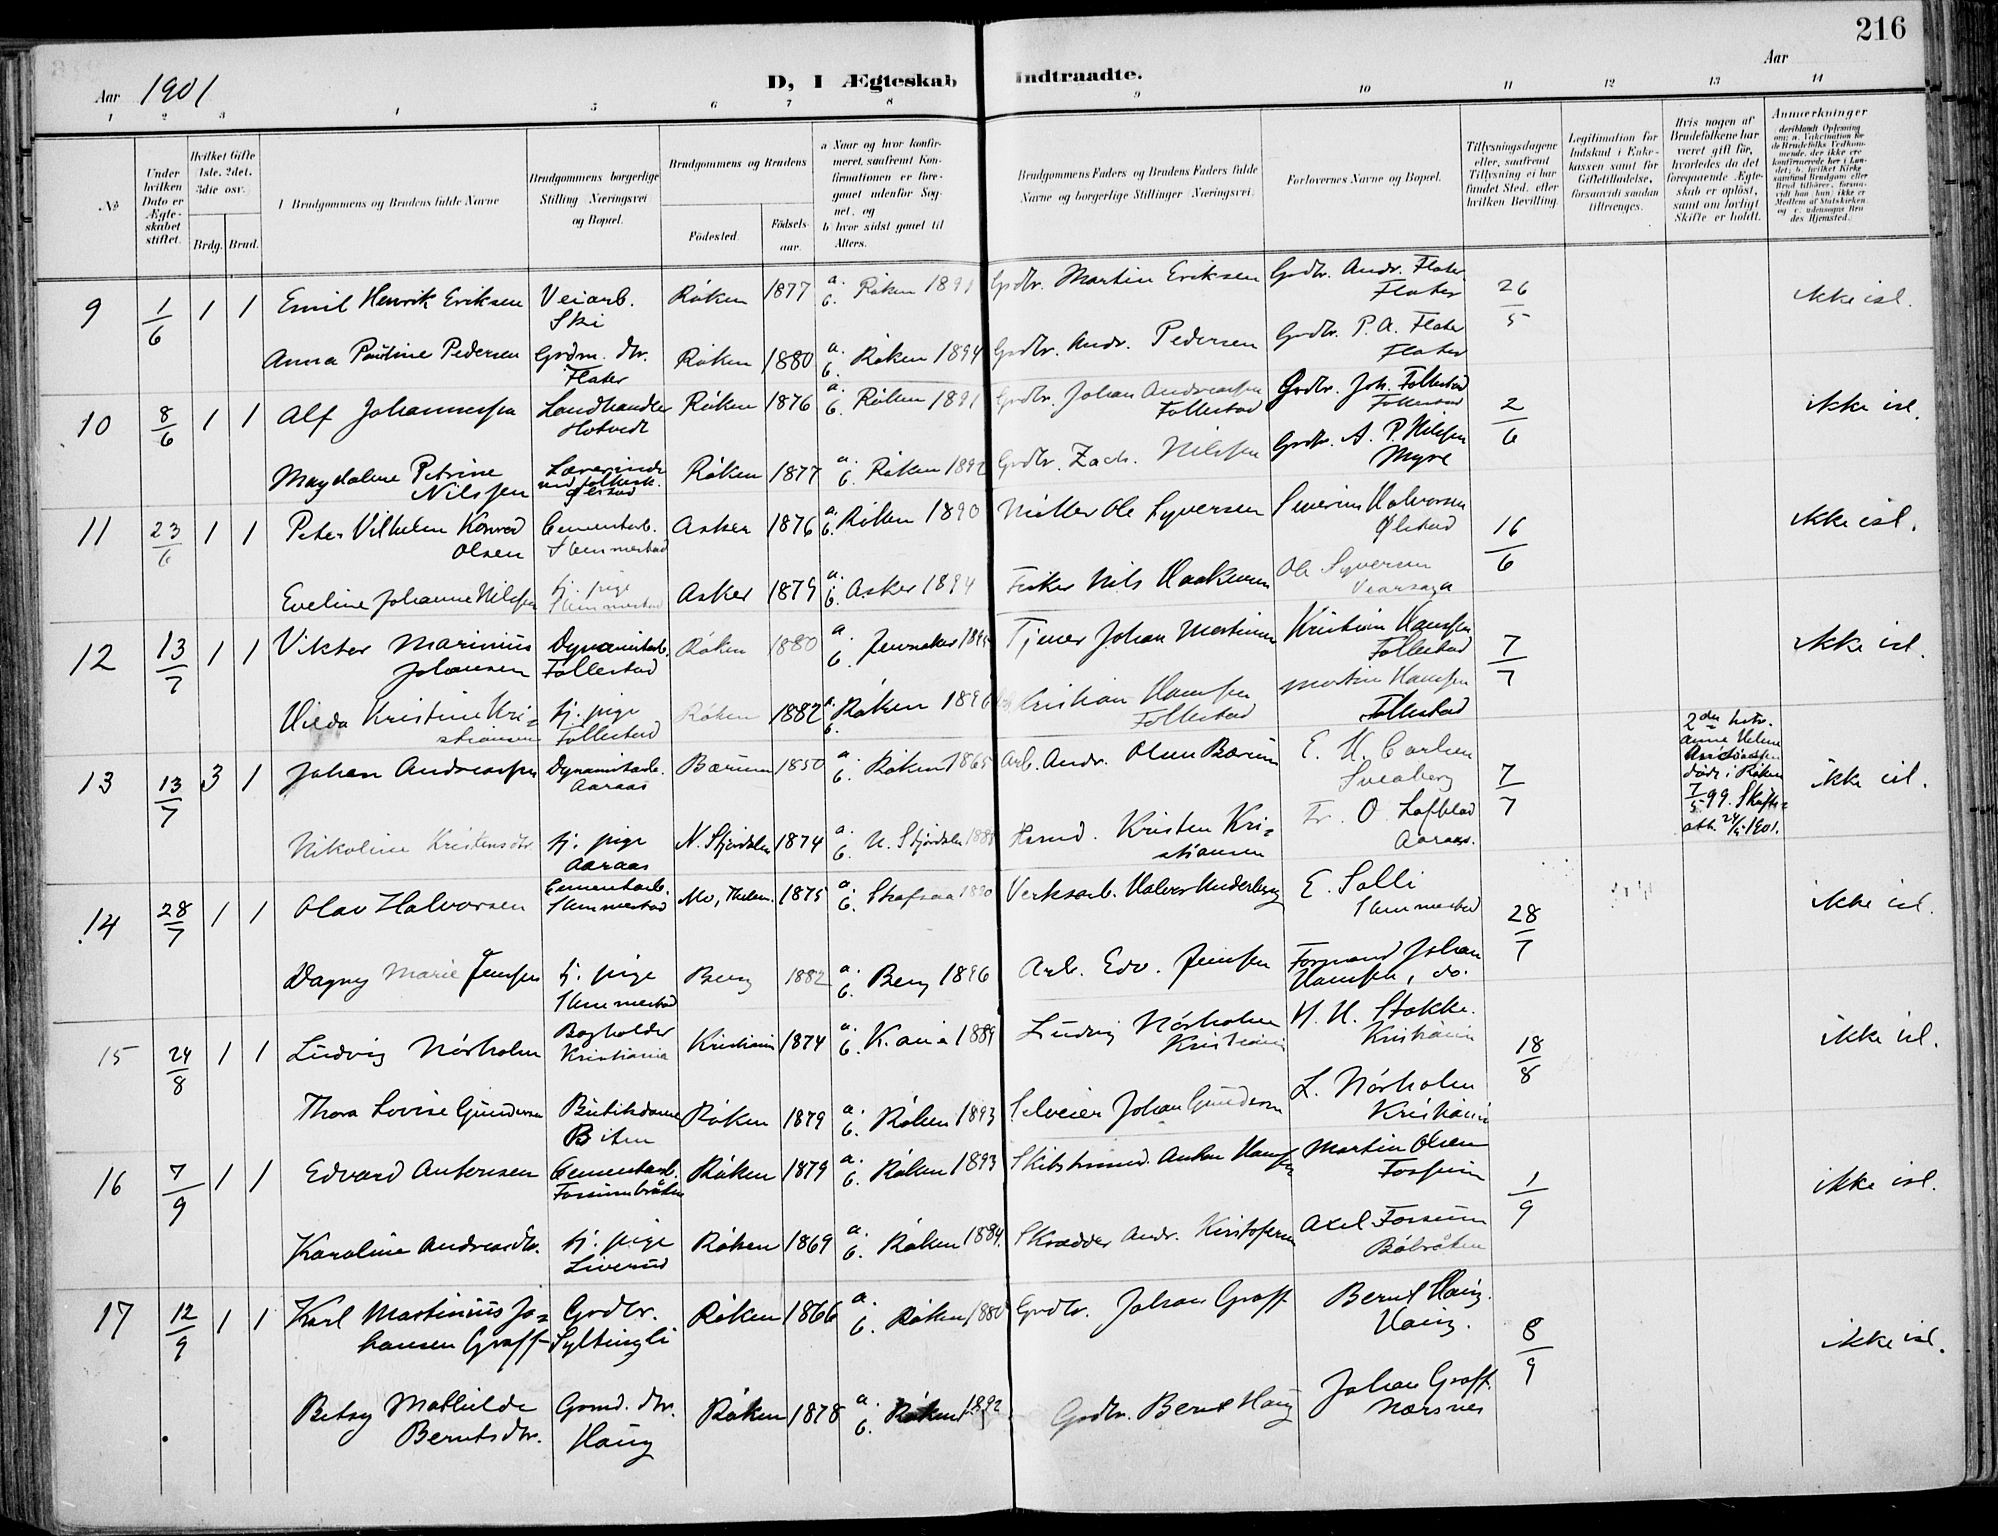 216
Aar 1901
D, I Ægteskab Indtraadte.
Aar
1 2 3 4 5 6 7 8 9 10 11 12 13 14
№
Under hvilken Dato er Ægteskabet stiftet.
Hvilket Gifte 1ste, 2det, 3die osv.
Brdg. Brud.
Brudgommens og Brudens fulde Navne
Brudgommens borgerlige Stilling Næringsvei og Bopæl.
Brudgommens og Brudens
Fødested.
Fødsels-aar.
a Naar og hvor konfir-
meret, saafremt Kon-
firmationen er fore-
gaaet udenfor Sog-
net, og
b hvor sidst gaaet til
Alters.
Brudgommens Faders og Brudens Faders fulde
Navne og borgerlige Stillinger (Næringsvei.
Forlovernes Navne og Bopæl.
Tillysningsdagene
eller, saafremt
Tillysning ei har
fundet Sted, efter
hvilken Bevilling.
Legitimation for
Indskud i Enke-
kassen samt for
Giftetilladelse,
forsaavidt saadan
tiltrænges.
Hvis nogen af
Brudefolkene har
været gift før,
hvorledes da det
foregaaende Ægte-
skab er opløst,
samt om lovligt
Skifte er holdt.
Anmærkninger
9 1/6 1 1 Emil Henrik Eriksen Veiarb. Ski Røken 1877 a. b. Røken 1891 Grdbr. Martin Eriksen Grdbr. Andr. Flater Flater 26/5 ikke isl.
Anna Pauline Pedersen Grdm. dtr. Flater Røken 1880 a. b. Røken 1894 Grdbr. Andr. Pedersen Grdbr. P. A. Flater Flater
10 8/6 1 1 Alf Johannessen Landhandler Hotvedt Røken 1876 a. b. Røken 1891 Grdbr. Johan Andreassen Follestad Grdbr. Joh. Follestad Follestad 2/6 ikke isl.
Magdalene Petrine Nilssen Lærerinde Ølstad Røken 1877 a. b. Røken 1892 Grdbr. Zach. Nilssen Grdbr. A. P. Nilssen Myre
11 23/6 1 1 Peter Vilhelm Konrad Olsen Cementarb. Slemmestad Asker 1876 a. b. Røken 1890 Møller Ole Syversen Severin Halvorsen Ølstad 16/6 ikke isl.
Eveline Johanne Nilssen tj. pige Slemmestad Asker 1879 a. b. Asker 1894 Fisker Nils Haakensen Ole Syversen
12 13/7 1 1 Viktor Marinius Johansen Dynamitarb. Follestad Røken 1880 a. b. Jevnaker 1895 Tjener Johan Martinsen Kristian Hanssen Follestad 7/7 ikke isl.
Hilda Kristine Kri-
stiansen tj. pige Follestad Røken 1882 a. b. Røken 1896 Kristian Hanssen Follestad Martin Hanssen Follestad
13 13/7 3 1 Johan Andreassen Dynamitarb. Aaraas Bærum 1850 a. b. Røken 1865 Arb. Andr. Olsen Bærum E. H. Carlsen Sveaberg 7/7 2den hstr. Anne Helene Andreassen døde i Røken 7/5 99. Skifte-
att. 24/5 1901. ikke isl.
Nikoline Kristensdtr. tj. pige Aaraas N. Stjørdalen 1874 a. b. N. Stjørdalen 1889 Hsmd. Kristen Kri-
stiansen Fr. O. Lofblad Aaraas.
14 28/7 1 1 Olav Halvorsen Cementarb. Slemmestad Mo, Thelem. 1875 a. b. Skafsaa 1890 Verksarb. Halvor Underberg E. Solli Slemmestad 28/7 ikke isl.
Dagny Marie Jenssen tj. pige Slemmestad Berg 1882 a. b. Berg 1896 Arb. Edv. Jenssen Formand Johan Hanssen, do.
15 24/8 1 1 Ludvig Nörholm Bogholder Kristiania Kristiania 1874 a. b. K.ania 1889 Ludvig Nörholm Kristiania H. H. Stokke. Kristiania 18/8 ikke isl.
Thora Lovise Gundersen Butikdame Biten Røken 1879 a. b. Røken 1893 Selveier Johan Gundersen L. Nörholm Kristiania
16 7/9 1 1 Edvard Antonsen Cementarb. Forsumbråten Røken 1879 a. b. Røken 1893 Skibstmmd. Anton Hanssen Martin Olsen Forsum 1/9 ikke isl.
Karoline Andreasdtr. tj. pige Liverud Røken 1869 a. b. Røken 1884. Skrædder Andr. Kristofersen Axel Forsum Böbråten
17 12/9 1 1 Karl Martinius Jo-
hansen Graff Grdbr. Syltingli Røken 1866 a. b. Røken 1880 Grdbr. Johan Graff Bernt Haug. Haug. 8/9 ikke isl.
Betsy Mathilde Berntsdtr. Grmd. dtr. Haug Røken 1878 a. b. Røken 1892 Grdbr. Bernt Haug Johan Graff. Nærsnes